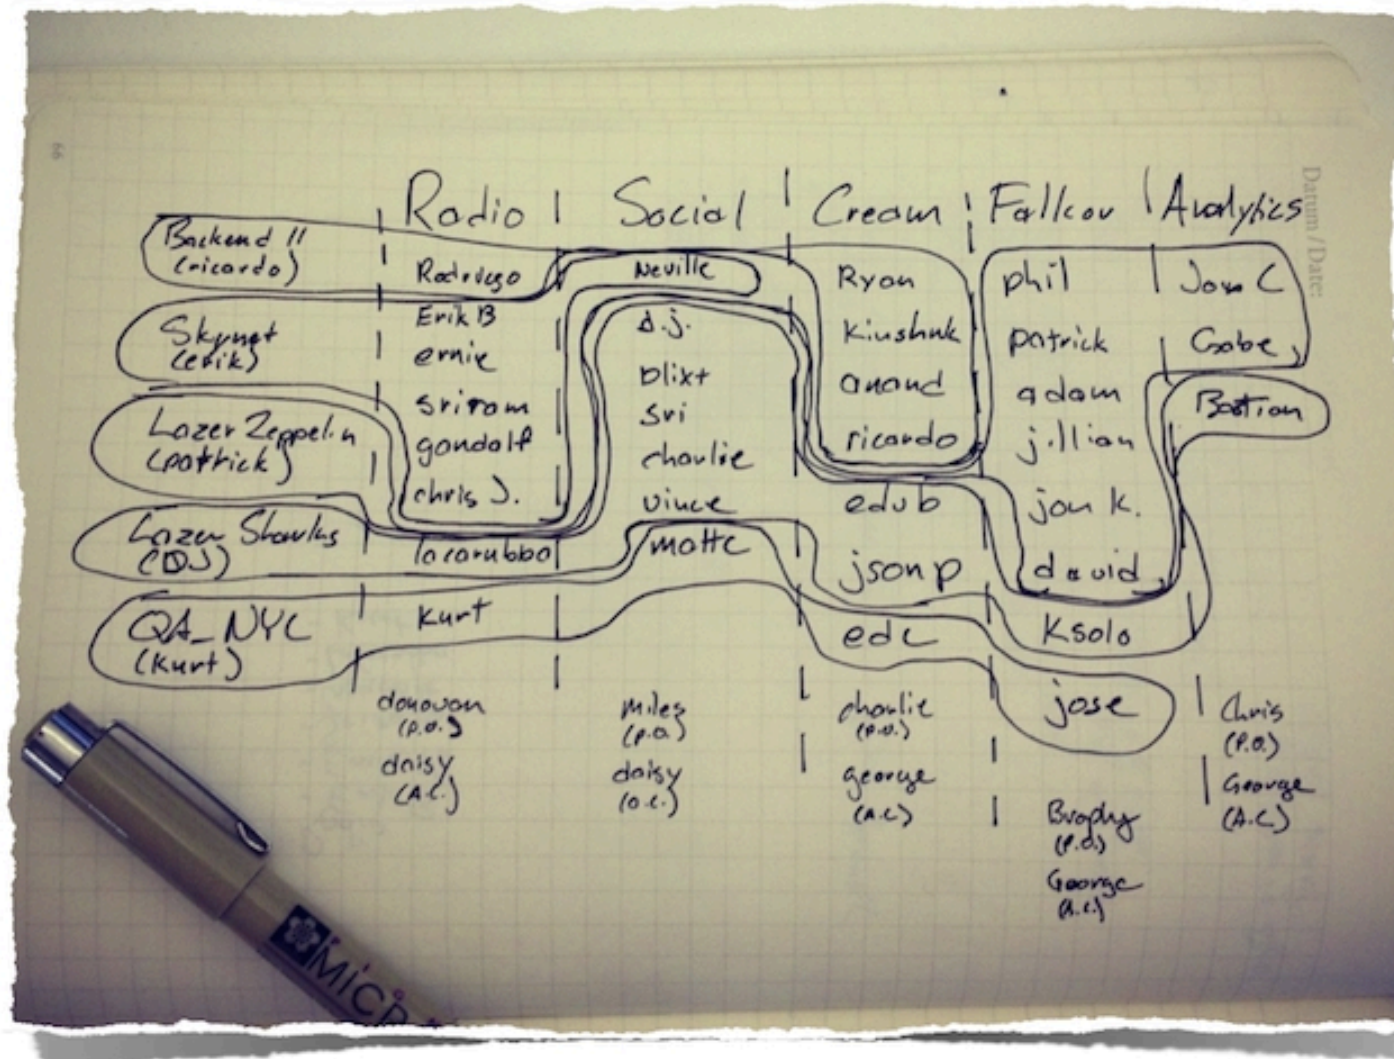 Radio Social Cream Fallcov Analytics
Backend II
(ricardo)
Skynet
(erik)
Lazer Zeppelin
(patrick)
Lazer
(DJ)
QA_NYC
(Kurt)
Rodrigo
Erik B
ernie
sriram
gandalf
chris J.
locarubba
Kurt
donovan
(P.O.)
daisy
(A.C.)
Neville
d.j.
blixt
sri
charlie
vince
matte
miles
(P.O.)
daisy
(a.c.)
Ryan
anand
ricardo
edub
jsonp
edc
charlie
(P.O.)
george
(A.C)
phil
patrick
adam
jillian
jon k.
david
Ksolo
jose
Brophy
(P.O.)
George
(A.C.)
Jon C
Gabe
Bastian
Chris
(P.O.)
George
(A.C.)
Datum / Date:
66
MICR